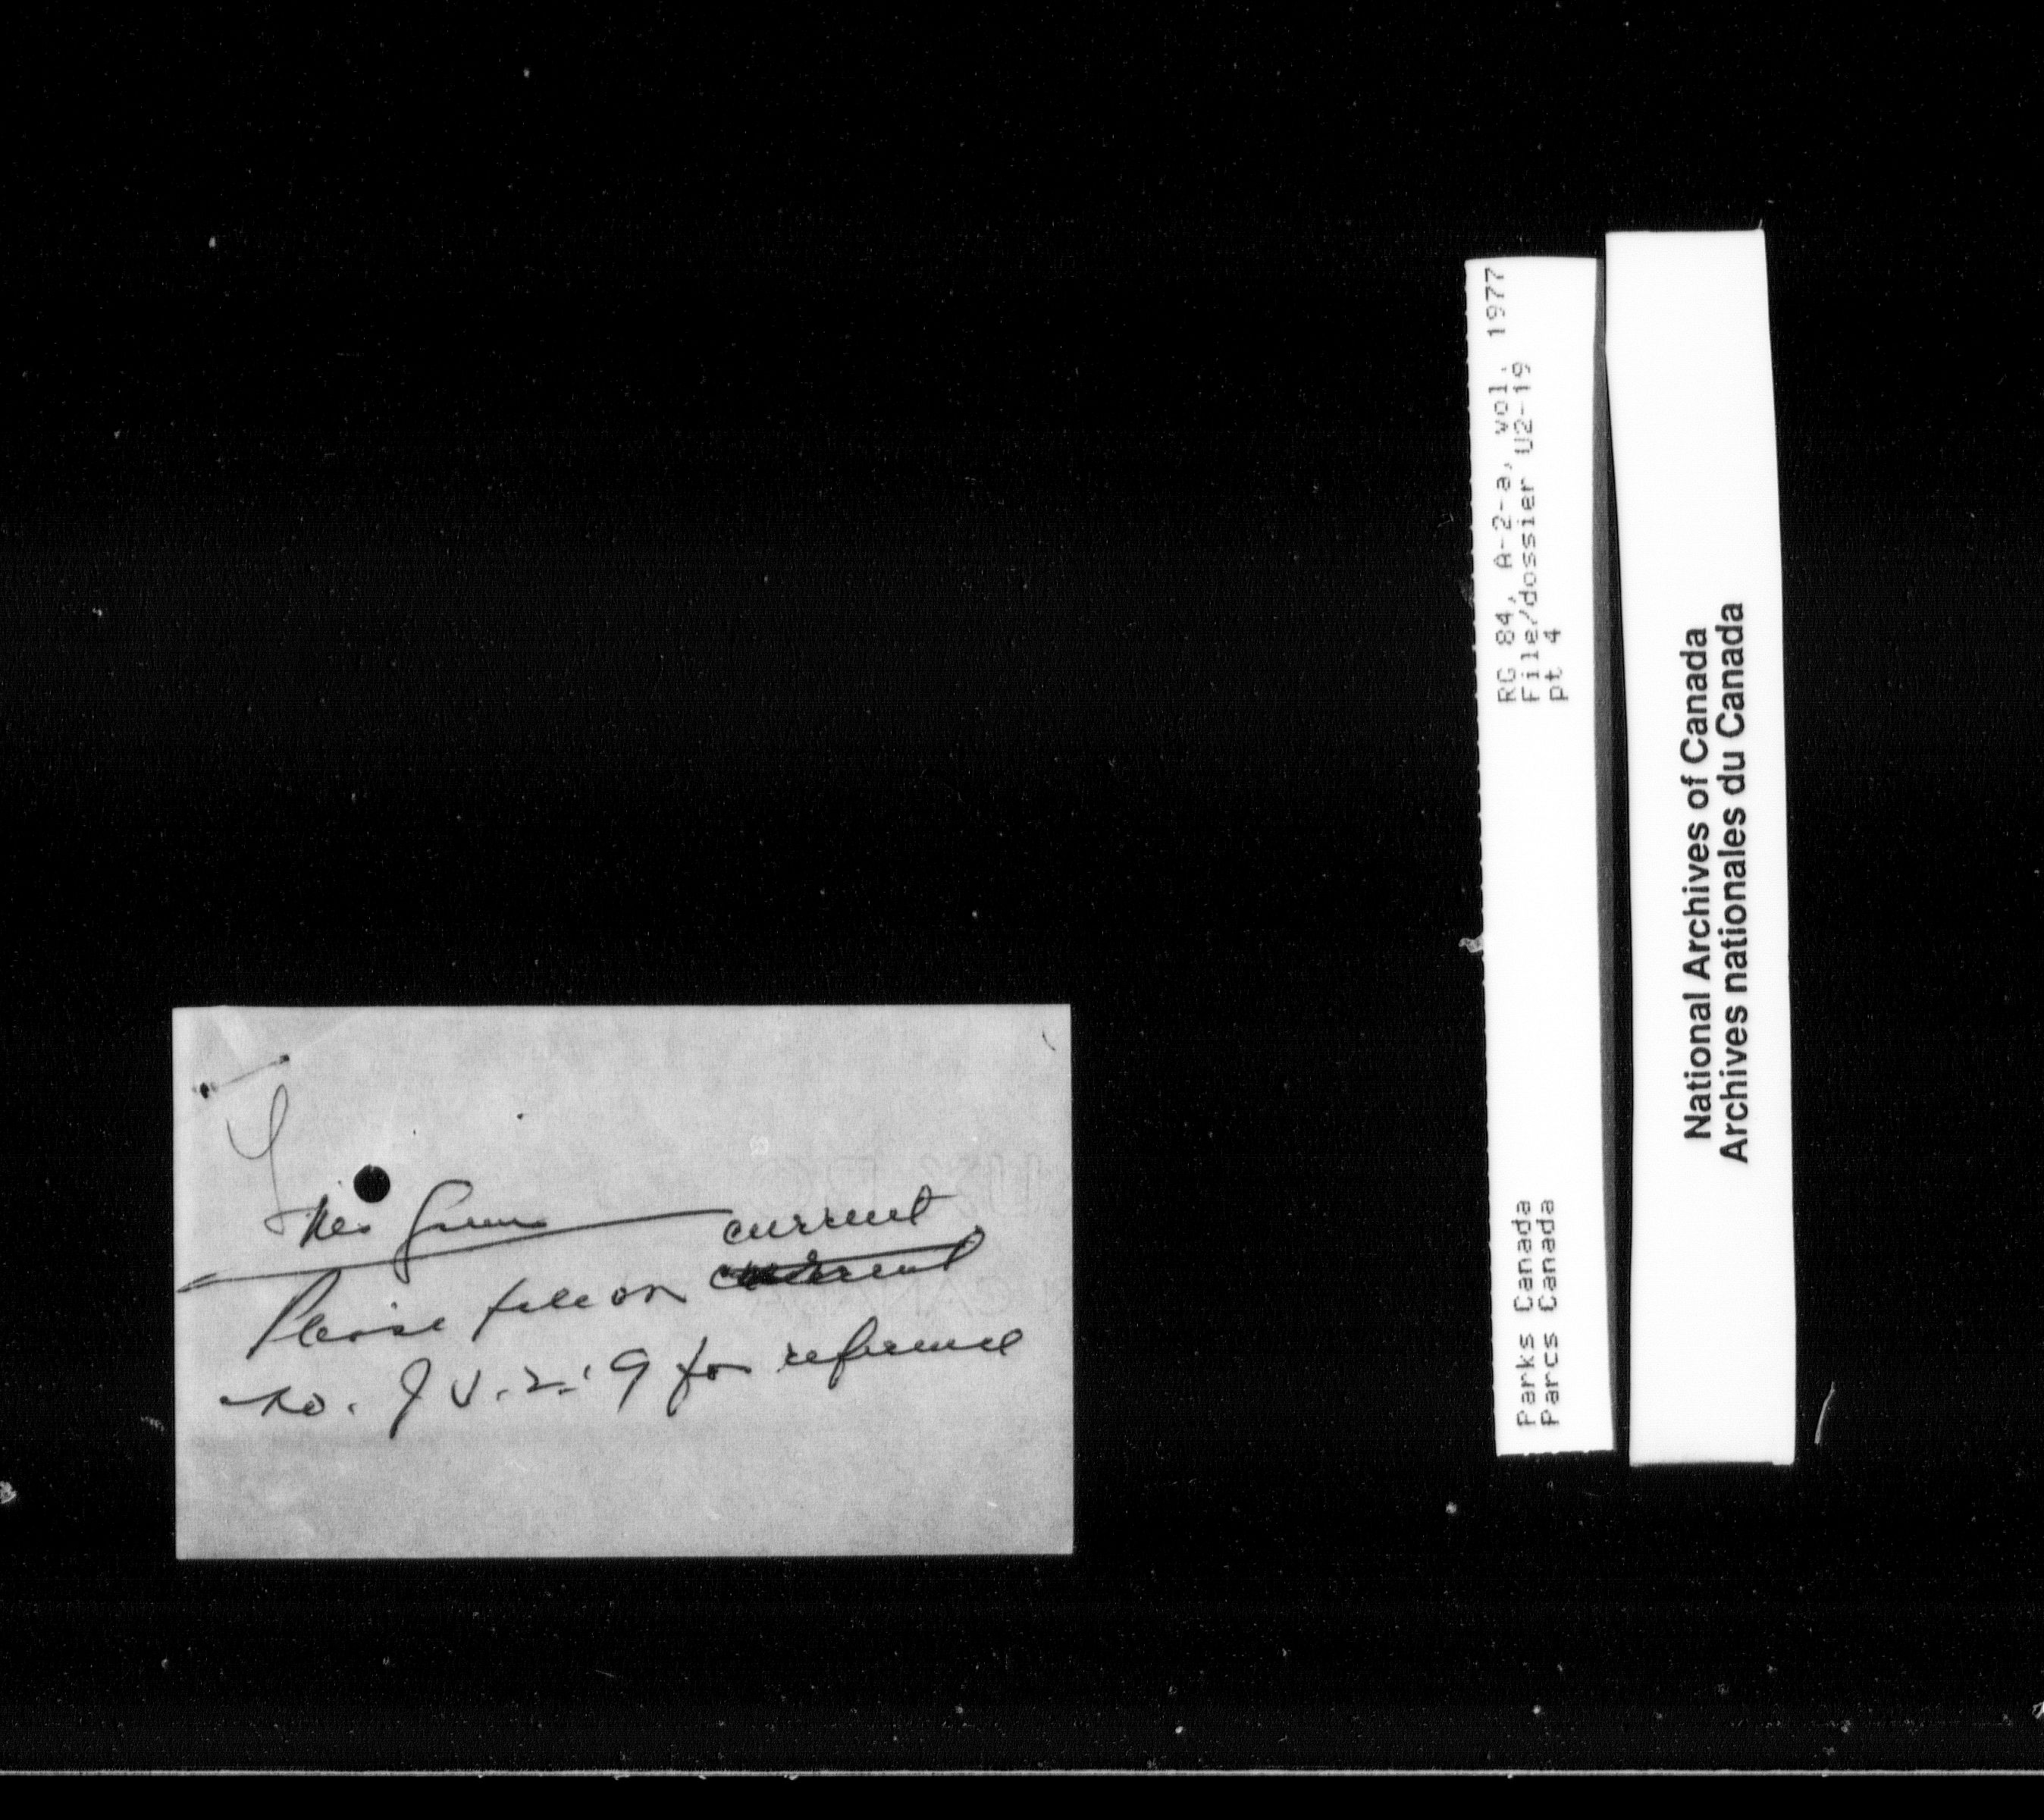 current
Please file on
no. for reference
RG 84, A-2-a, vol. 1977
File/dossier U2-19
pt 4
Parks Canada
Parcs Canada
National Archives of Canada
Archives nationales du Canada